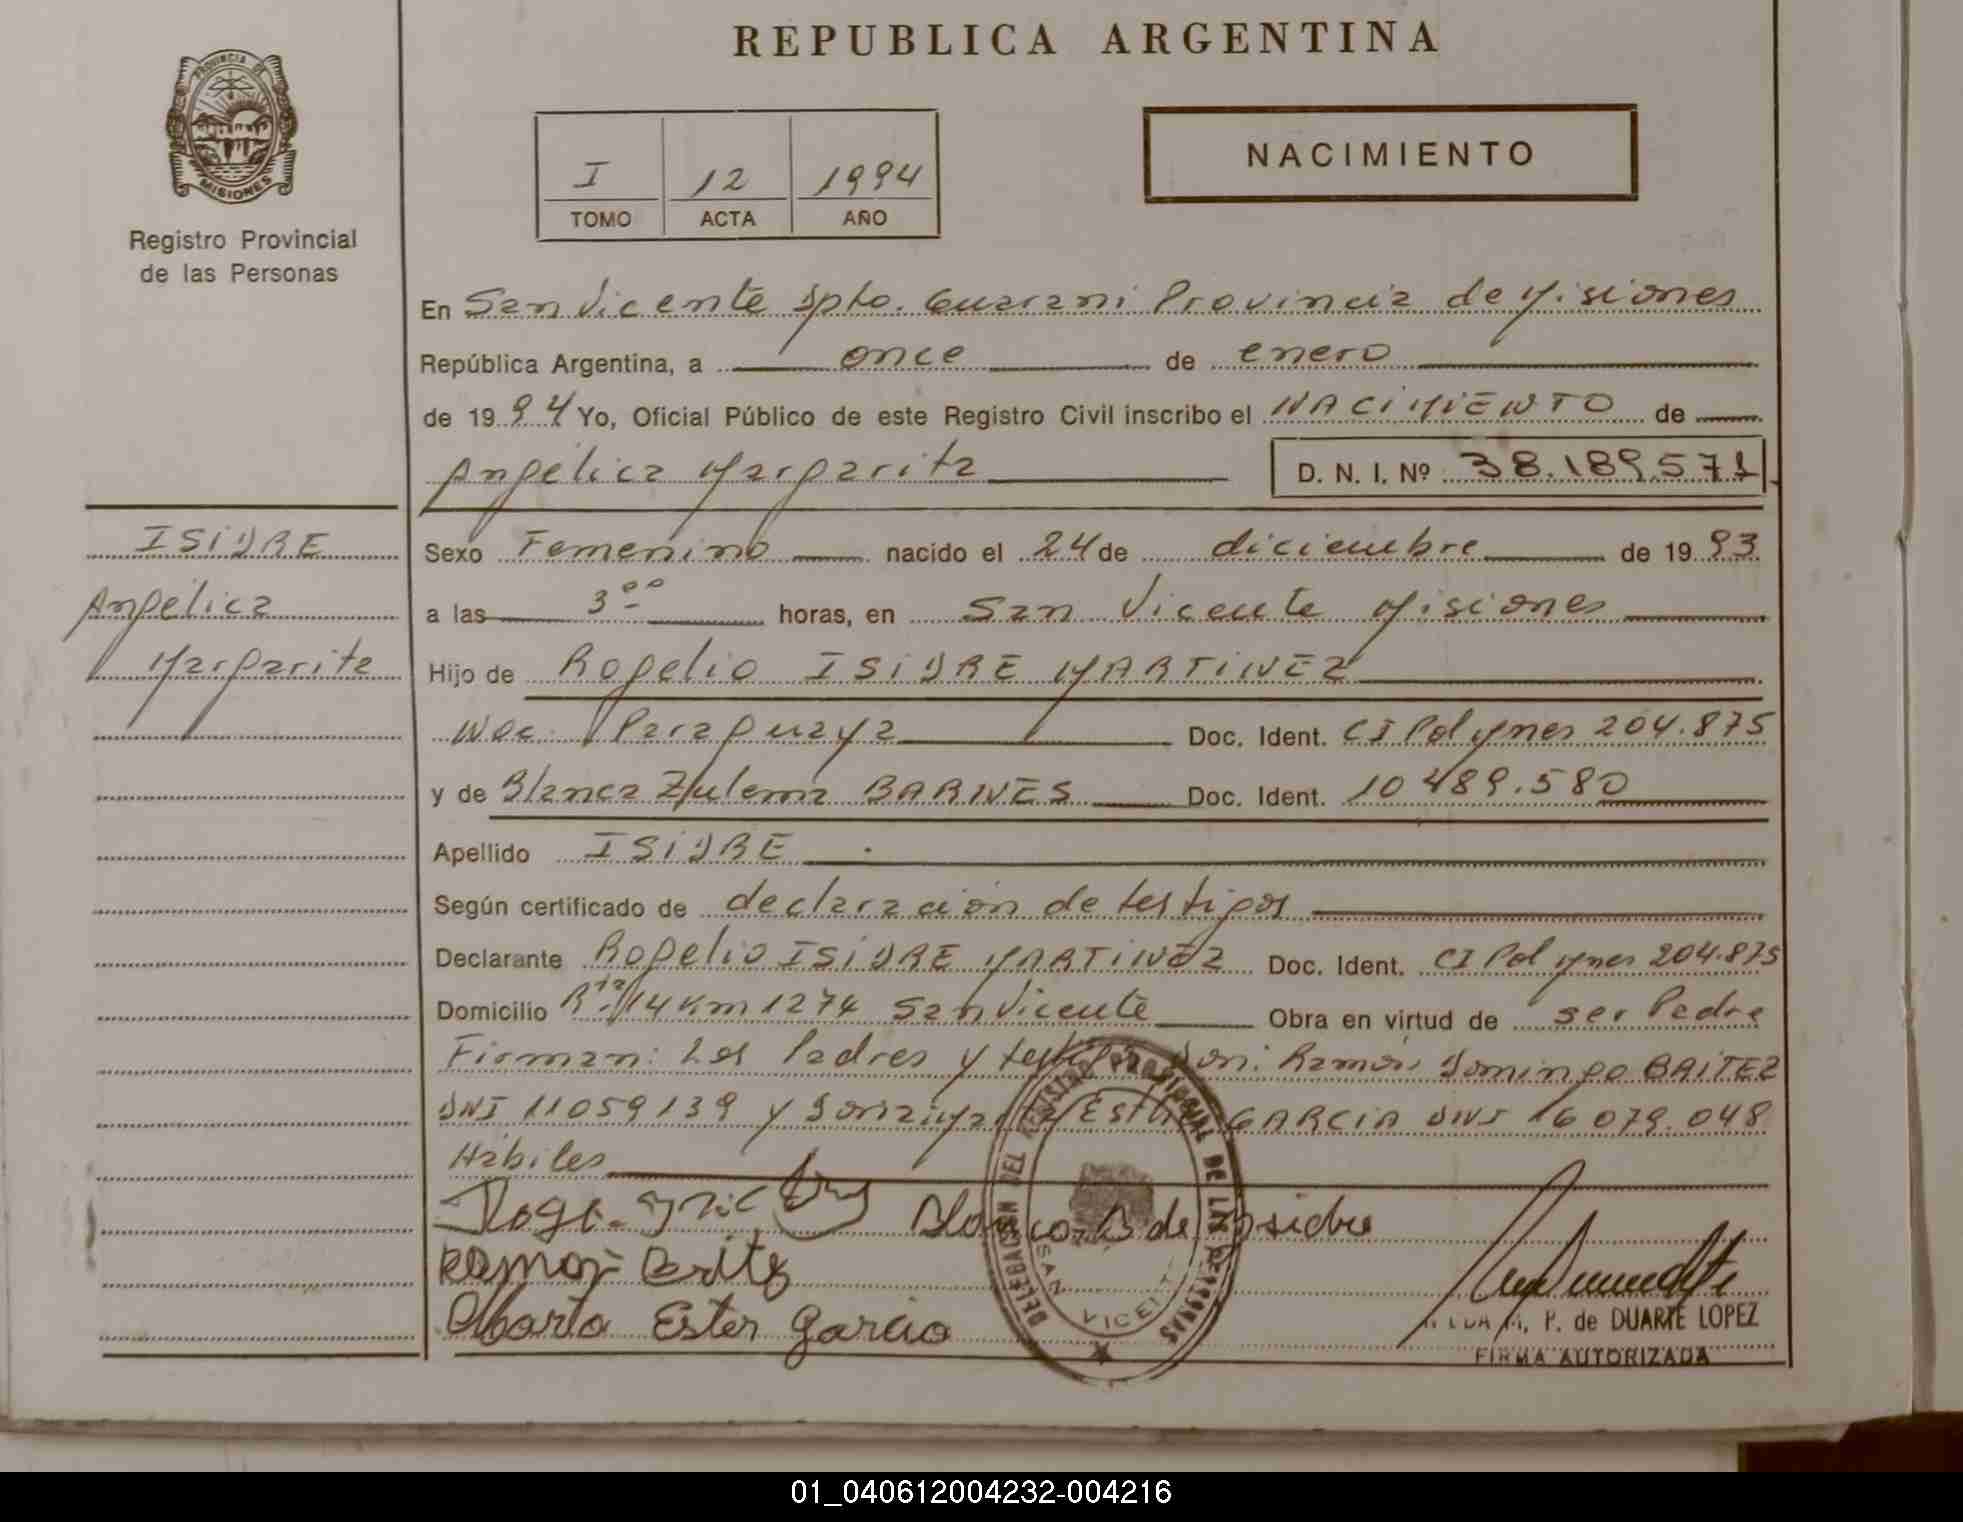 REPUBLICA ARGENTINA
PROVINCIA DE
MISIONES
Registro Provincial
de las Personas
I 12 1994
TOMO ACTA AÑO
NACIMIENTO
En San Vicente Dpto. Guarani Provincia de Misiones
República Argentina, a once de enero
de 1994 Yo, Oficial Público de este Registro Civil inscribo el NACIMIENTO de
Angélica Margarita D. N. I. Nº 38.189.571
ISIDRE
Angélica
Margarita
Sexo Femenino nacido el 24 de diciembre de 1993
a las 3 00 horas, en San Vicente Misiones
Hijo de Rogelio ISIDRE MARTINEZ
Nac. Paraguaya Doc. Ident. CI Pol Mnes 204.875
y de Blanca Zulema BARNES Doc. Ident. 10 489.580
Apellido ISIDRE
Según certificado de declaración de testigos
Declarante Rogelio ISIDRE MARTINEZ Doc. Ident. CI Pol Mnes 204.875
Domicilio Rta 14 Km 1274 San Vicente Obra en virtud de ser Padre
Firman: Los Padres y testigos Don: Ramón Domingo BRITEZ
DNI 11059139 y Doña Marta Ester GARCIA DNI 16 079.048
Hábiles
Blanca B de Isidre
Ramon Britez
Marta Ester Garcia
DELEGACION DEL REGISTRO PROVINCIAL DE LAS PERSONAS
SAN VICENTE
M. P. de DUARTE LOPEZ
FIRMA AUTORIZADA
01_040612004232-004216